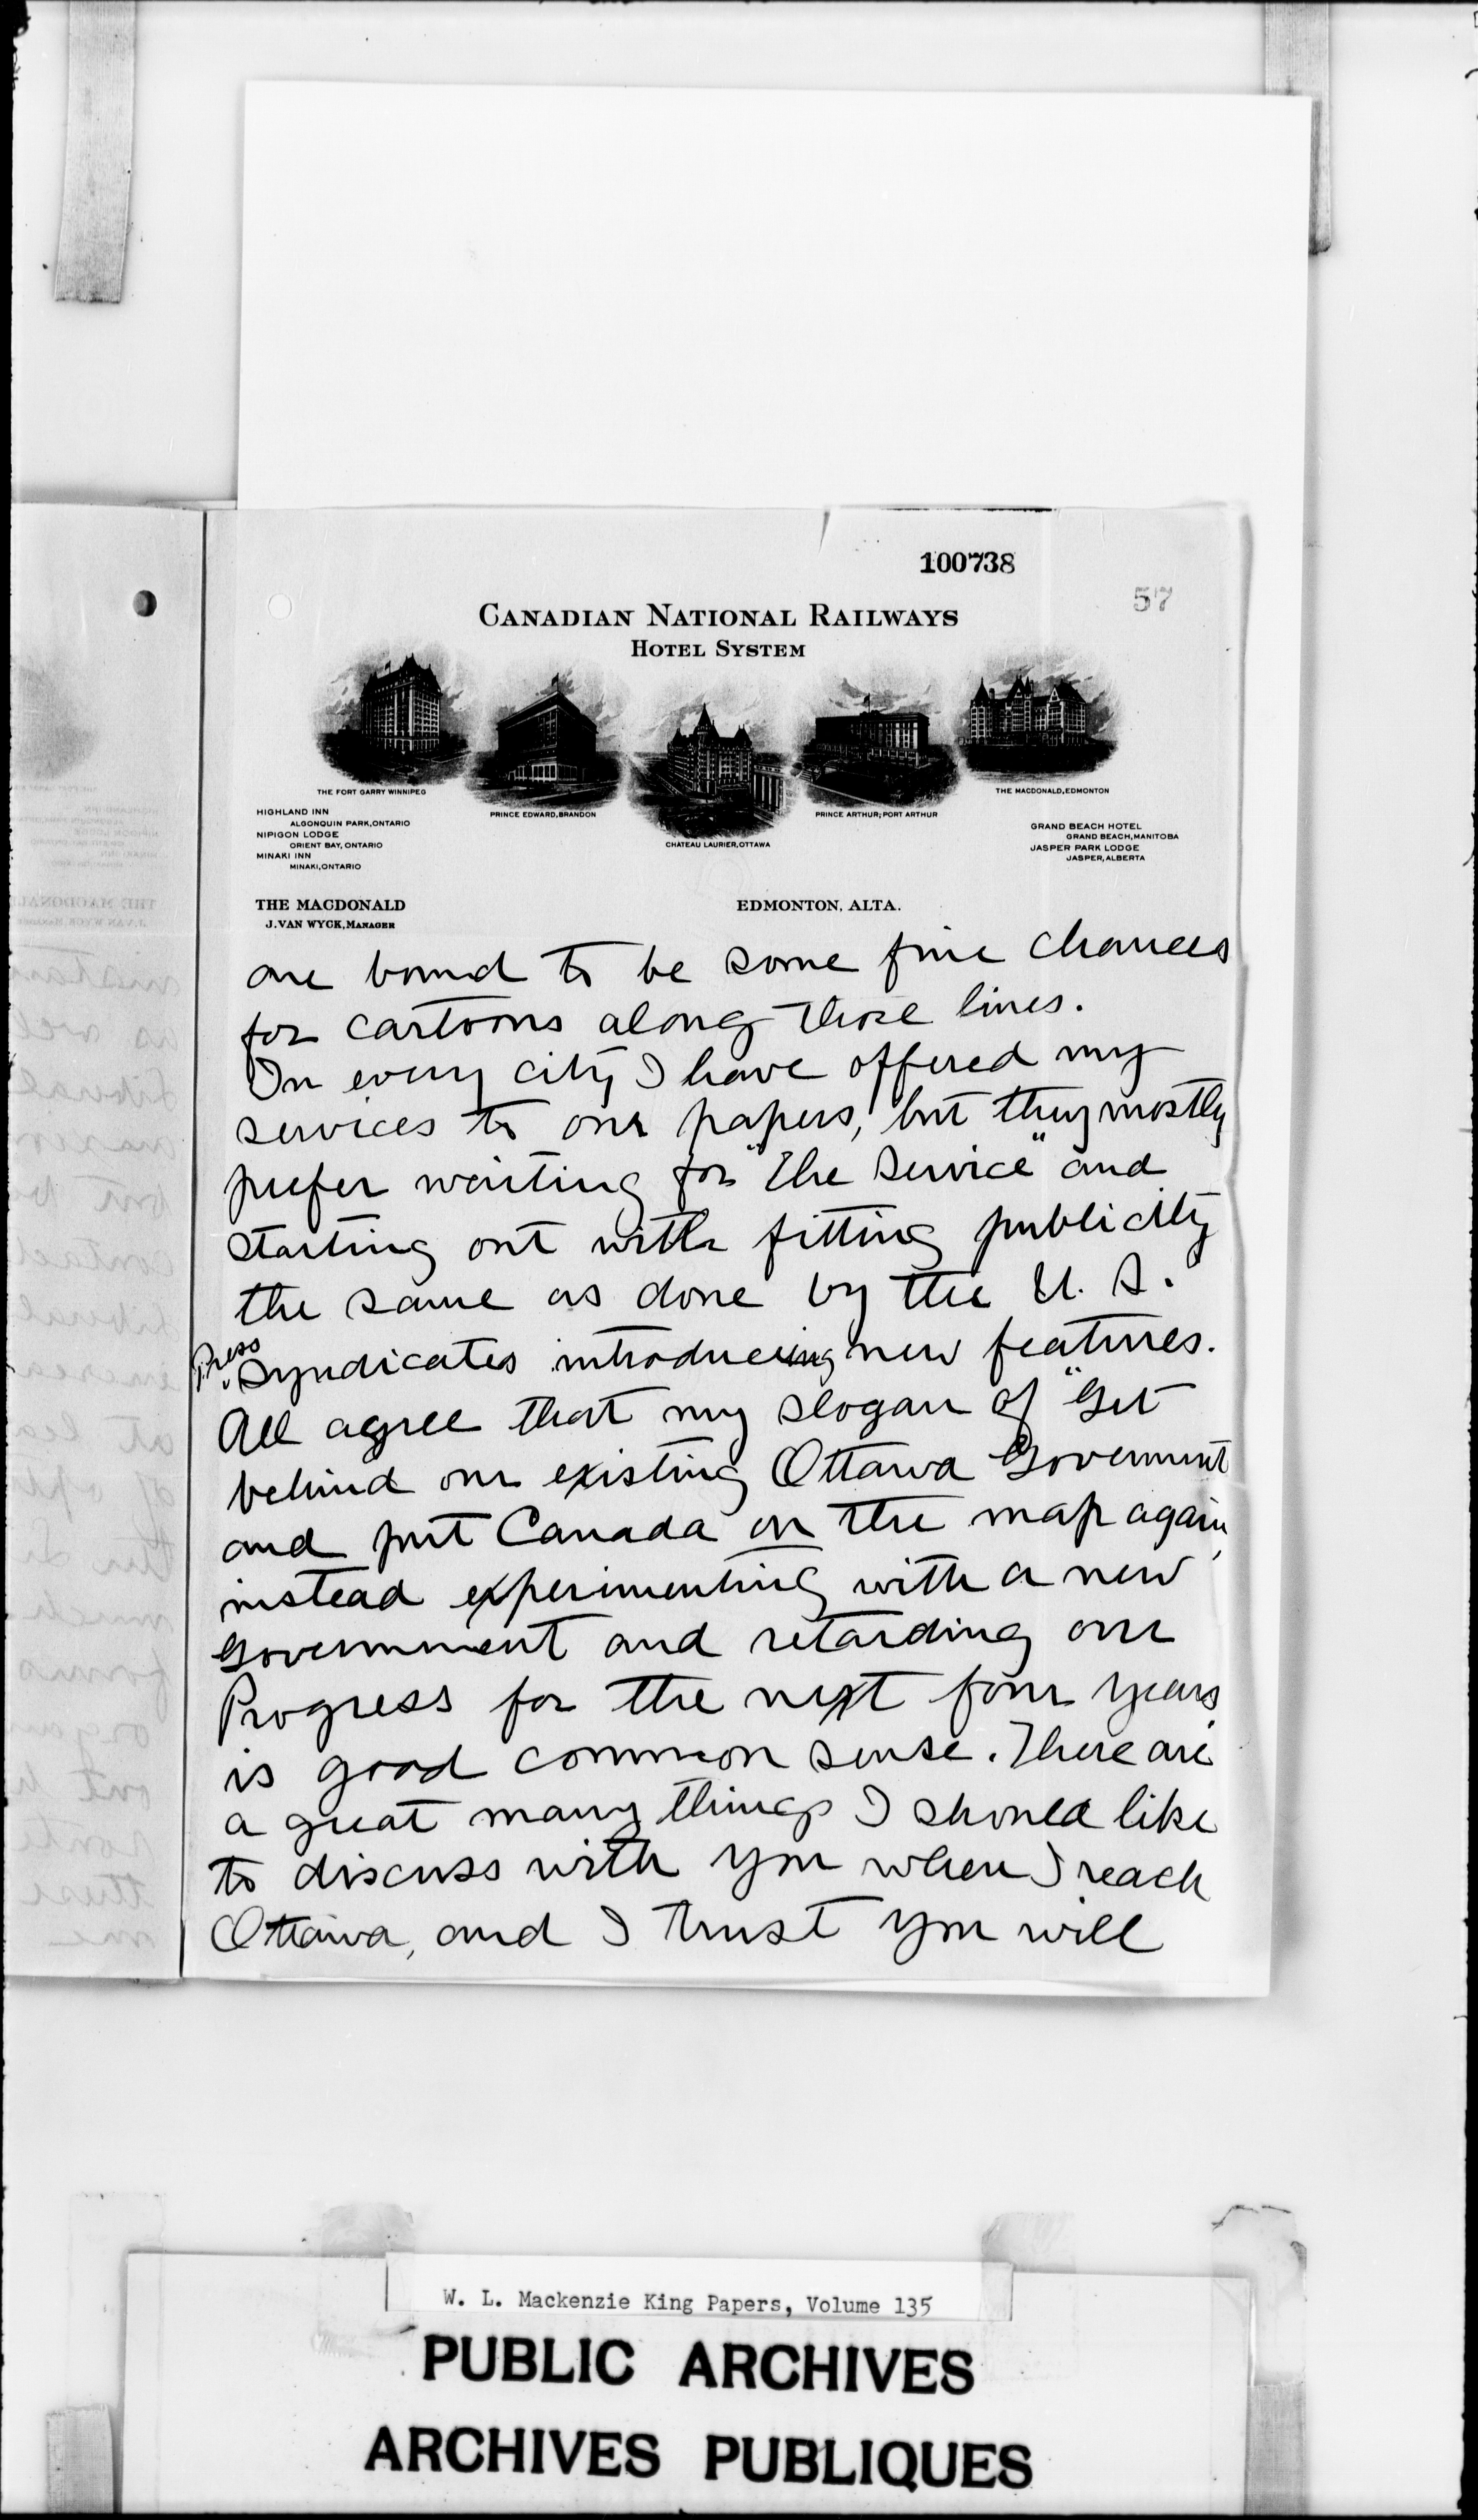 100738
57
CANADIAN NATIONAL RAILWAYS
HOTEL SYSTEM
THE FORT GARRY WINNIPEG
PRINCE EDWARD, BRANDON
CHATEAU LAURIER, OTTAWA
PRINCE ARTHUR, PORT ARTHUR
THE MACDONALD, EDMONTON
HIGHLAND INN
ALGONQUIN PARK, ONTARIO
NIPIGON LODGE
ORIENT BAY, ONTARIO
MINAKI INN
MINAKI, ONTARIO
GRAND BEACH HOTEL
GRAND BEACH, MANITOBA
JASPER PARK LODGE
JASPER, ALBERTA
THE MACDONALD
J. VAN WYCK, MANAGER
EDMONTON, ALTA.
are bound to be some fine chances
for cartoons along those lines.
In every city I have offered my
services to our papers, but they mostly
prefer waiting for "The Service" and
starting out with fitting publicity
the same as done by the U. S.
Press Syndicates introducing new features.
All agree that my slogan of "Get
behind our existing Ottawa Government
and put Canada on the map again,
instead experimenting with a new
Government and retarding our
Progress for the next four years
is good common sense. There are
a great many things I should like
to discuss with you when I reach
Ottawa, and I trust you will
W. L. Mackenzie King Papers, Volume 135
PUBLIC ARCHIVES
ARCHIVES PUBLIQUES